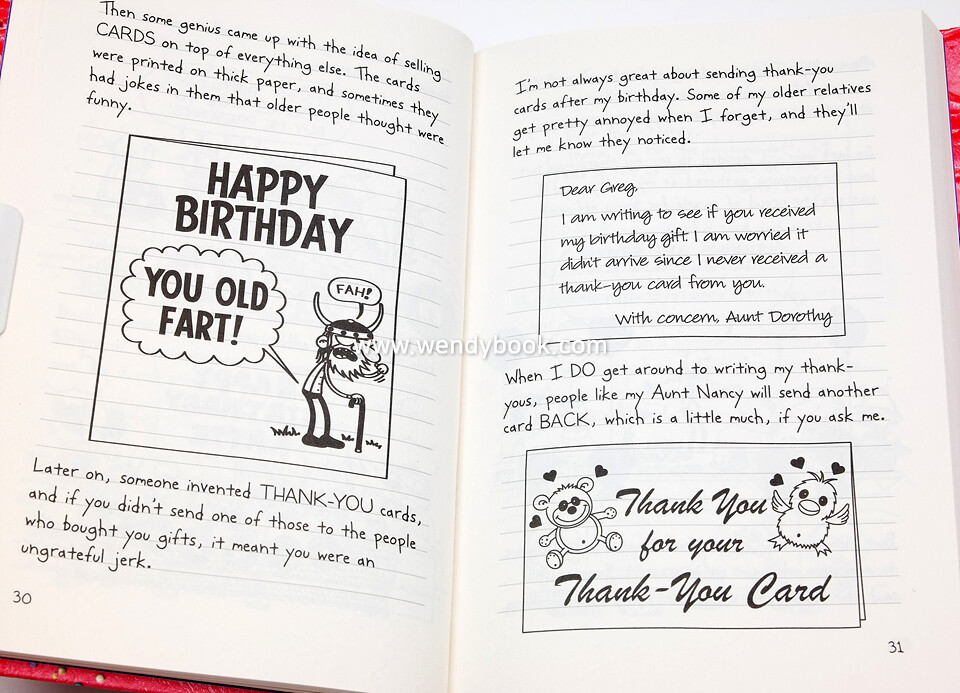 Then some genius came up with the idea of selling
CARDS on top of everything else. The cards
were printed on thick paper, and sometimes they
had jokes in them that older people thought were
funny.
HAPPY
BIRTHDAY
YOU OLD
FART!
FAH!
Later on, someone invented THANK-YOU cards,
and if you didn't send one of those to the people
who bought you gifts, it meant you were an
ungrateful jerk.
30
I'm not always great about sending thank-you
cards after my birthday. Some of my older relatives
get pretty annoyed when I forget, and they'll
let me know they noticed.
Dear Greg,
I am writing to see if you received
my birthday gift. I am worried it
didn't arrive since I never received a
thank-you card from you.
With concern, Aunt Dorothy
www.wendybook.com
When I DO get around to writing my thank-
yous, people like my Aunt Nancy will send another
card BACK, which is a little much, if you ask me.
Thank You
for your
Thank-You Card
31